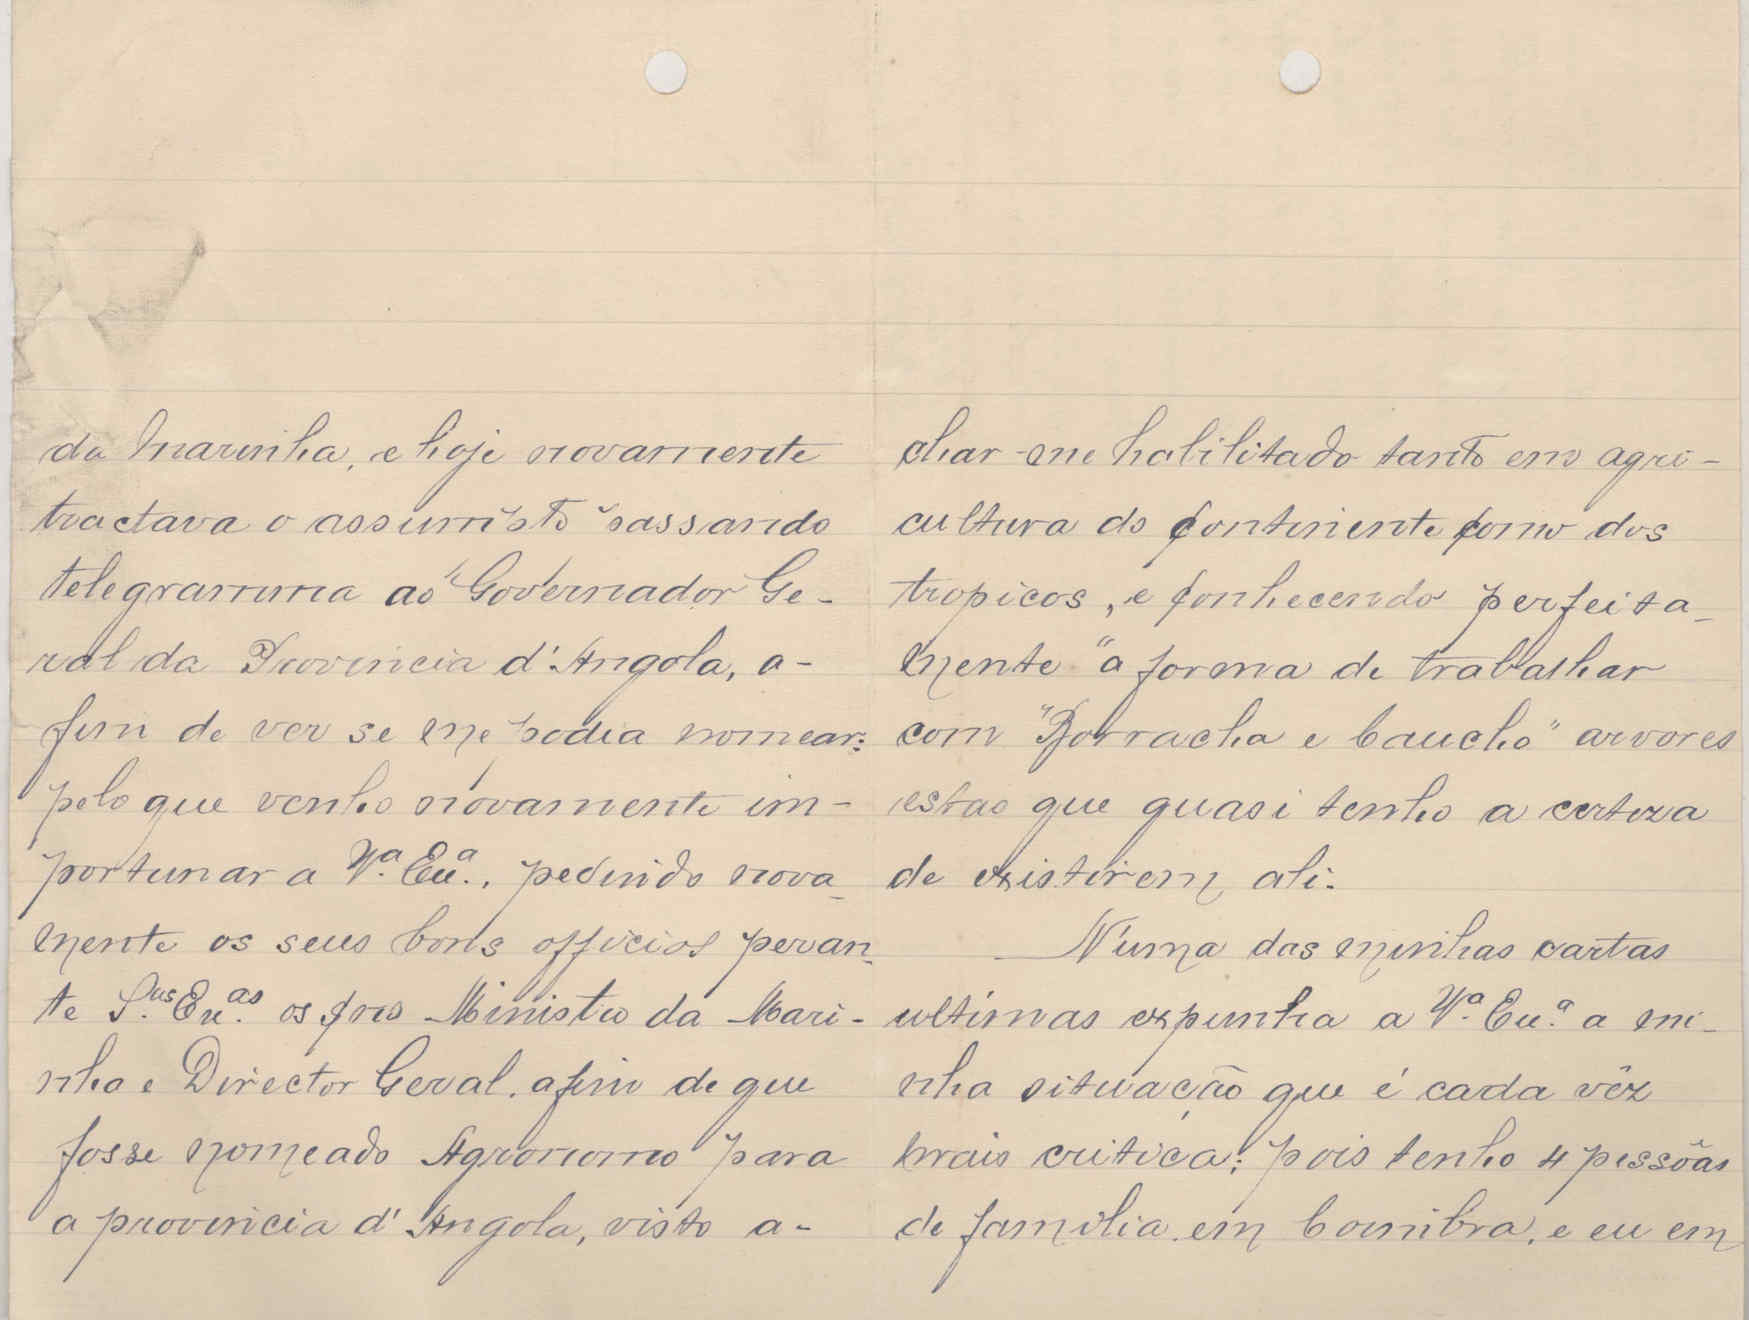 da Marinha, e hoje novamente
tractava o assumpto passando
telegramma ao Governador Ge-
ral da Provincia d'Angola, a-
fim de ver se me podia nomear;
pelo que venho novamente im-
portunar a Vª. Exª., pedindo nova_
mente os seus bons officios peran_
te S.as Ex.as os Ministro da Mari-
nha e Director Geral. afim de que
fosse nomeado Agronomo para
a provincia d'Angola, visto a-
char-me habilitado tanto em agri-
cultura do Continente como dos
tropicos, e conhecendo perfeita_
mente a forma de trabalhar
com "Borracha e Caucho" arvores
estas que quasi tenho a certeza
de existirem ali.
N'uma das minhas cartas
ultimas expunha a Vª. Ex.ª a mi-
nha situação que é cada vêz
mais critica; pois tenho 4 pessôas
de familia em Coimbra, e eu em